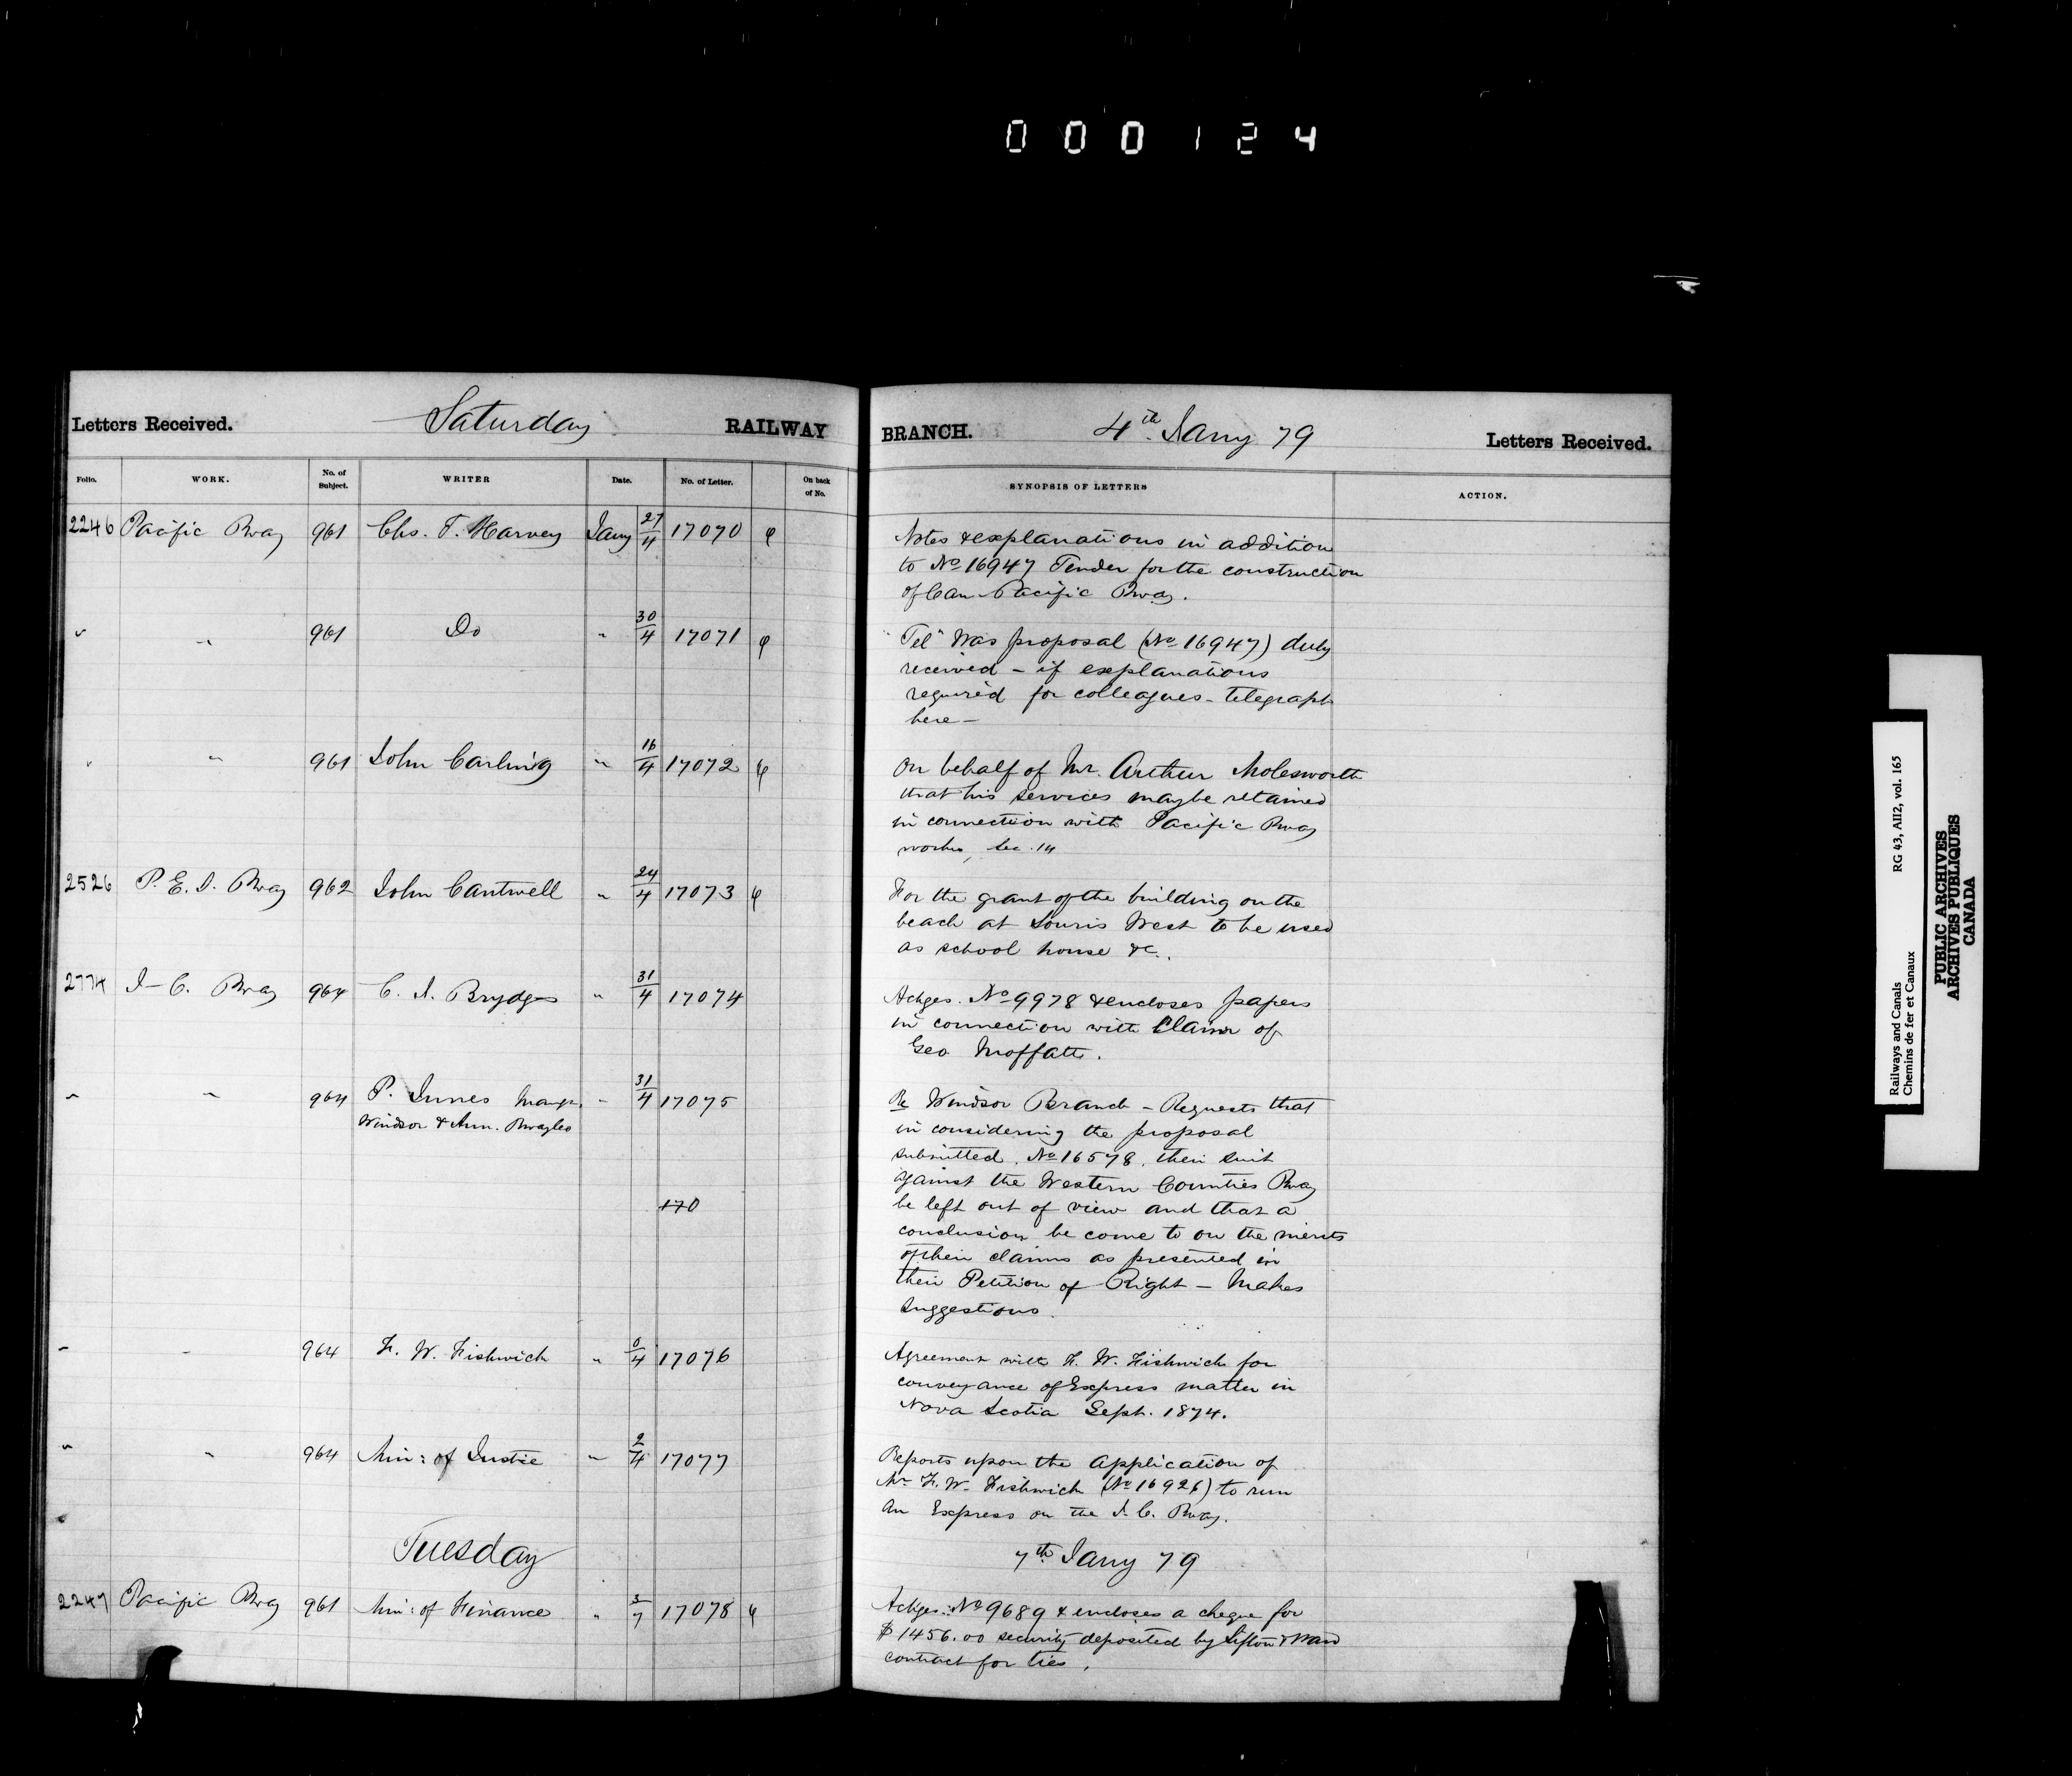 000124
Letters Received. Saturday RAILWAY BRANCH. 4th Jany 79 Letters Received.
Folio. WORK. No. of Subject. WRITER Date. No. of Letter. On back of No. SYNOPSIS OF LETTERS ACTION.
2246 Pacific Rway 961 Chs. T. Harvey Jany 27/4 17070 Notes & explanations in addition
to No 16947 Tender for the construction
of Can Pacific Rway.
" " 961 Do " 30/4 17071 "Tel" Was proposal (No 16947) duly
received - if explanations
required for colleagues - telegraph
here -
" " 961 John Carling " 16/4 17072 On behalf of Mr. Arthur Molesworth
that his services may be retained
in connection with Pacific Rway
works, sec. 14
2526 P. E. I. Rway 962 John Cantwell " 24/4 17073 For the grant of the building on the
beach at Souris West to be used
as school house &c.
2774 I-C. Rway 964 C. J. Brydges " 31/4 17074 Ackges. No 9978 & encloses papers
in connection with Claim of
Geo Moffatt.
" " 964 P. Innes Mangr. " 31/4 17075 Re Windsor Branch - Requests that
Windsor & Ann. Rway Co
in considering the proposal
submitted. No 16578, their suit
against the Western Counties Rway
170
be left out of view and that a
conclusion be come to on the merits
of their claims as presented in
their Petition of Right - Makes
suggestions.
" " 964 F. W. Fishwick " /4 17076 Agreement with F. W. Fishwick for
conveyance of Express matter in
Nova Scotia Sept. 1874.
" " 964 Min: of Justice " 2/4 17077 Reports upon the application of
Mr F. W. Fishwick (No 16926) to run
an Express on the I. C. Rway.
Tuesday 7th Jany 79
2247 Pacific Rway 961 Min: of Finance " 3/7 17078 Ackges. No 9689 & encloses a cheque for
$1456.00 security deposited by Sifton & Ward
contract for ties.
Railways and Canals RG 43, AII2, vol. 165
Chemins de fer et Canaux
PUBLIC ARCHIVES
ARCHIVES PUBLIQUES
CANADA